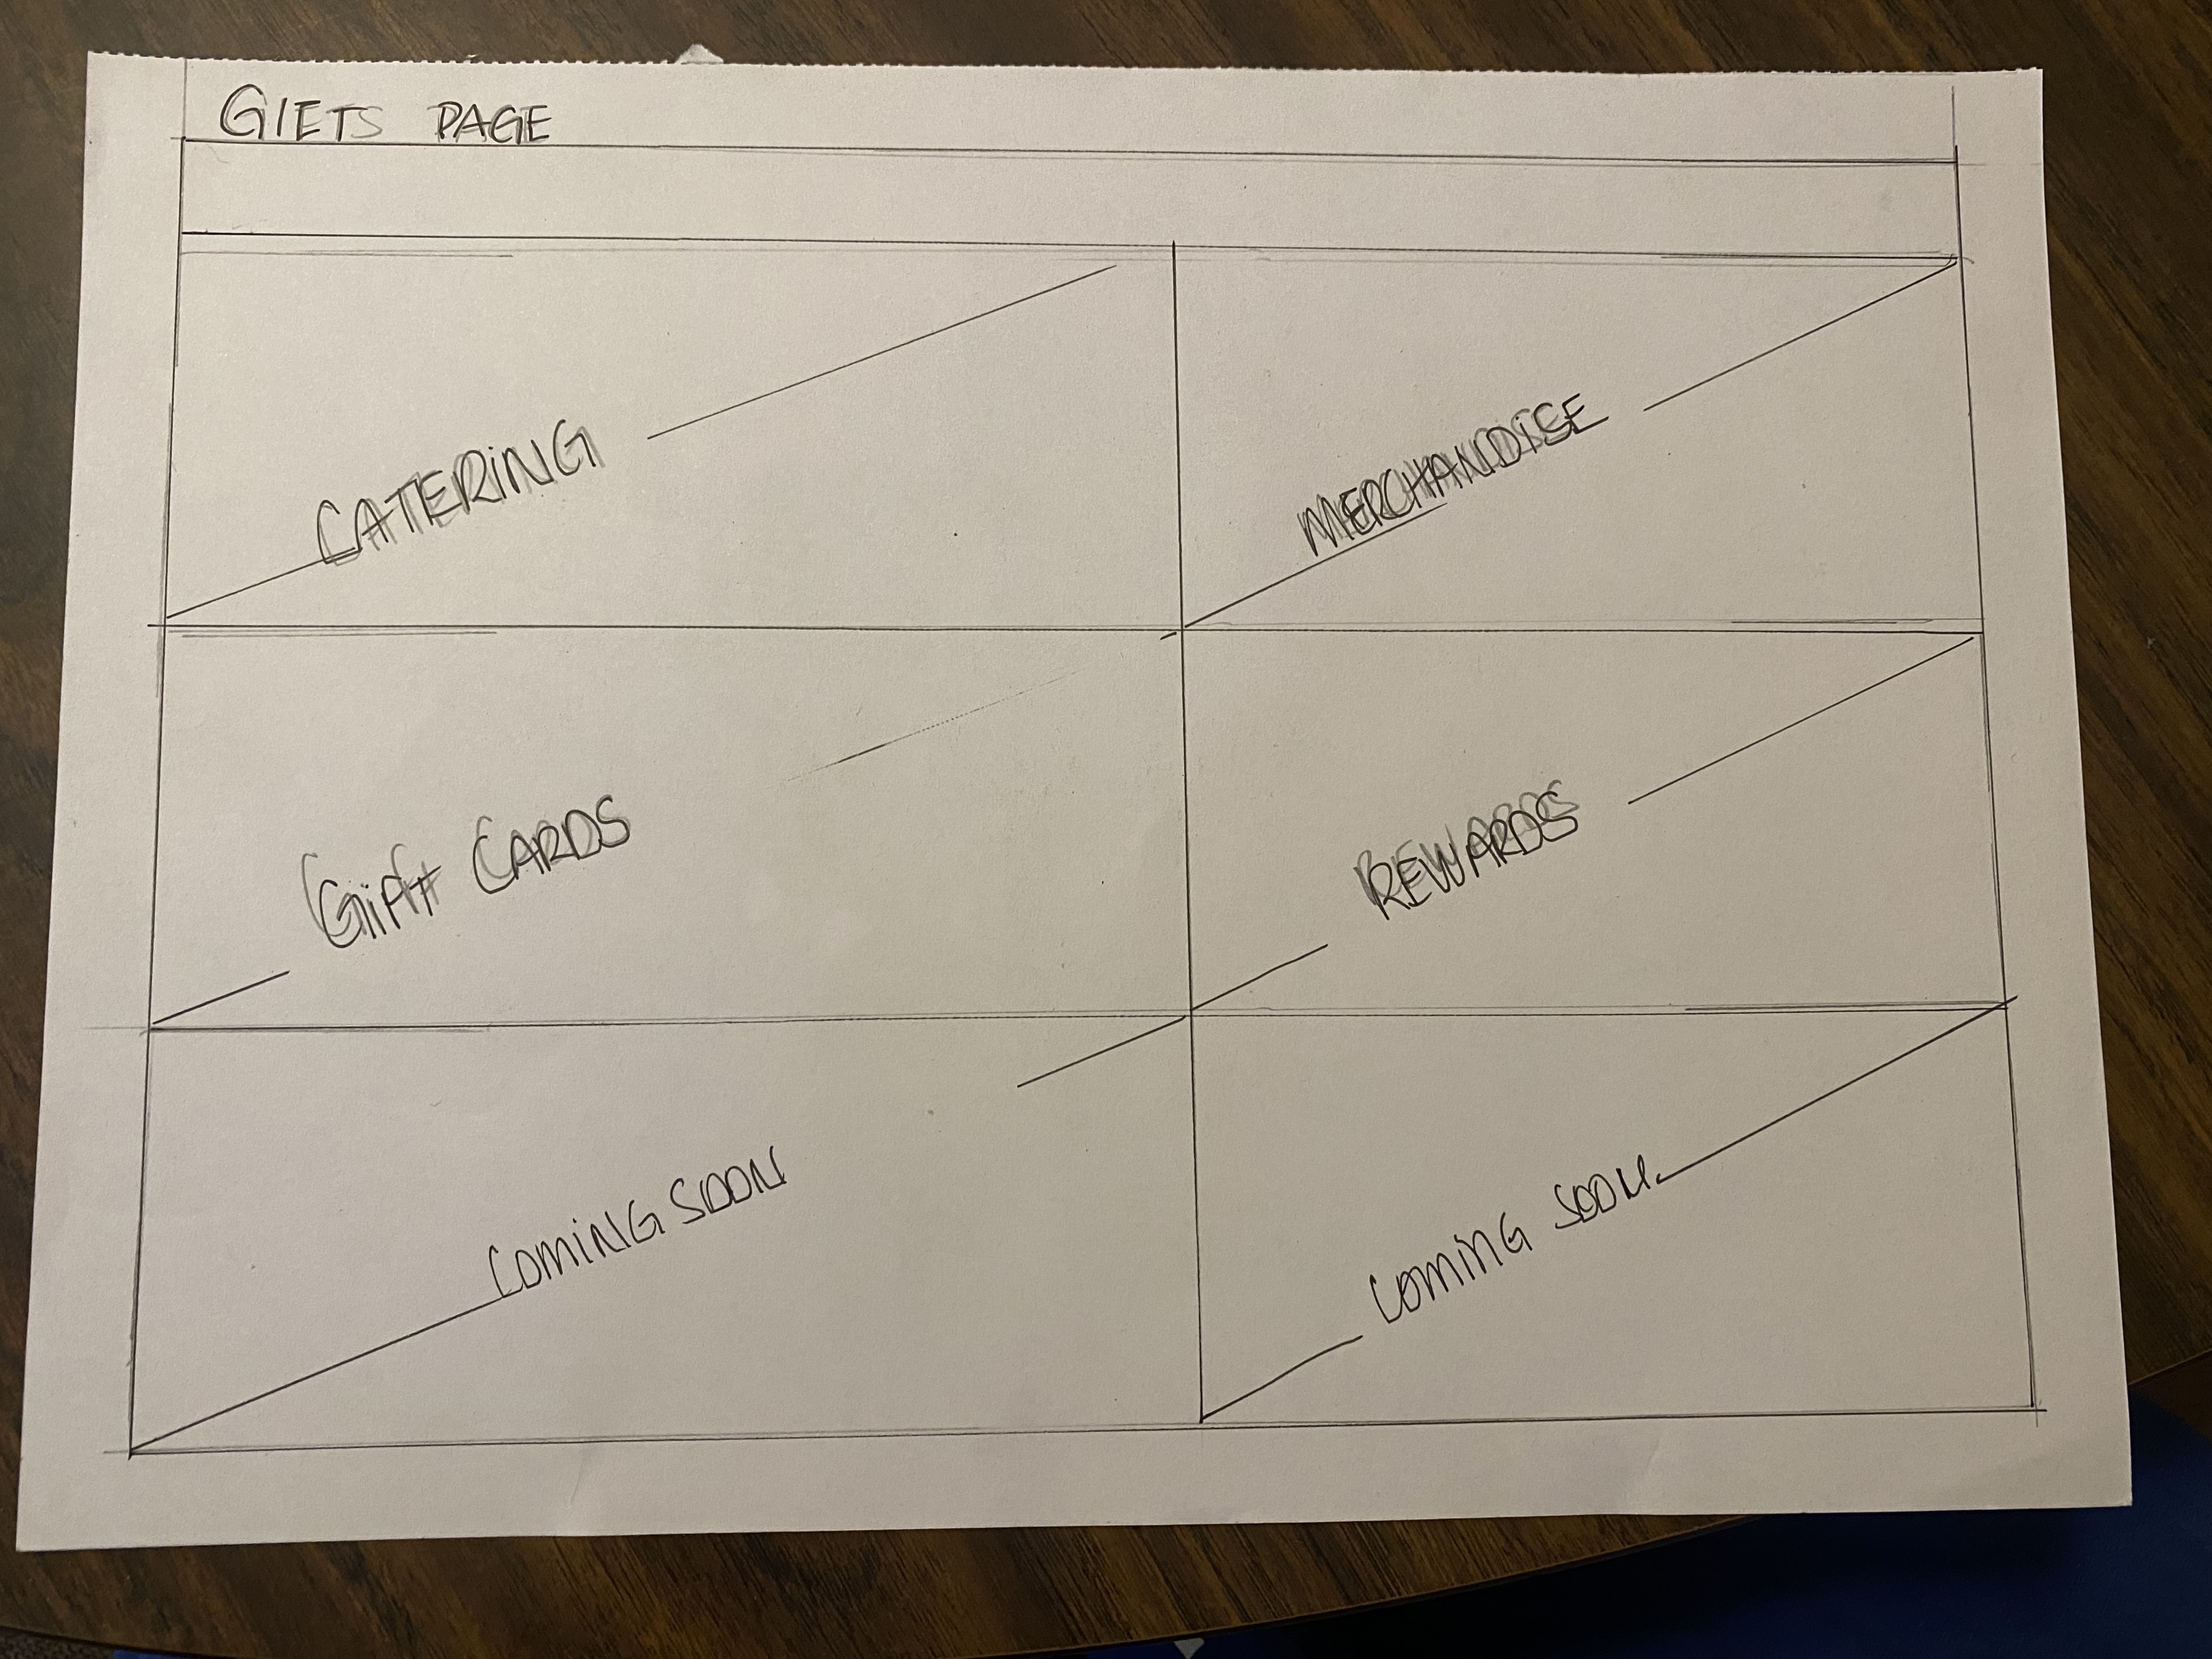 GIFTS PAGE
CATERING
MERCHANDISE
Gift CARDS
REWARDS
COMING SOON
COMING SOON